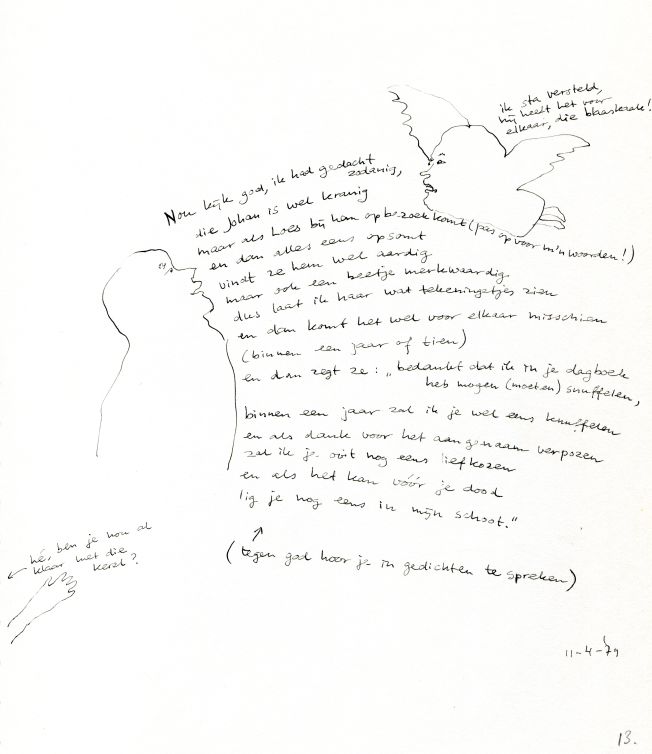 ik sta versteld,
hij heeft het voor
elkaar, die blaaskaak!
Nou kijk god, ik had gedacht
zodanig,
die Johan is wel kranig
maar als Loes bij hem op bezoek komt (pas op voor m'n woorden!)
en dan alles eens opsomt
vindt ze hem wel aardig
maar ook een beetje merkwaardig
dus laat ik haar wat tekeningetjes zien
en dan komt het wel voor elkaar misschien
(binnen een jaar of tien)
en dan zegt ze: „bedankt dat ik in je dagboek
heb mogen (moeten) snuffelen,
binnen een jaar zal ik je wel eens knuffelen
en als dank voor het aangenaam verpozen
zal ik je ooit nog eens liefkozen
en als het kan vóór je dood
lig je nog eens in mijn schoot."
(tegen god hoor je in gedichten te spreken)
hé, ben je nou al
klaar met die
kerel?
11-4-'79
13.